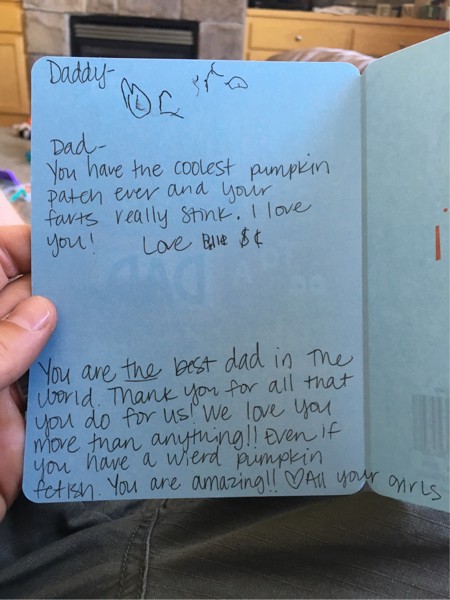 Daddy-
Dad-
You have the coolest pumpkin
patch ever and your
farts really stink. I love
you! Love $¢
You are the best dad in the
world. Thank you for all that
you do for us! We love you
more than anything!! Even if
you have a wierd pumpkin
fetish. You are amazing!! ♡All your girls